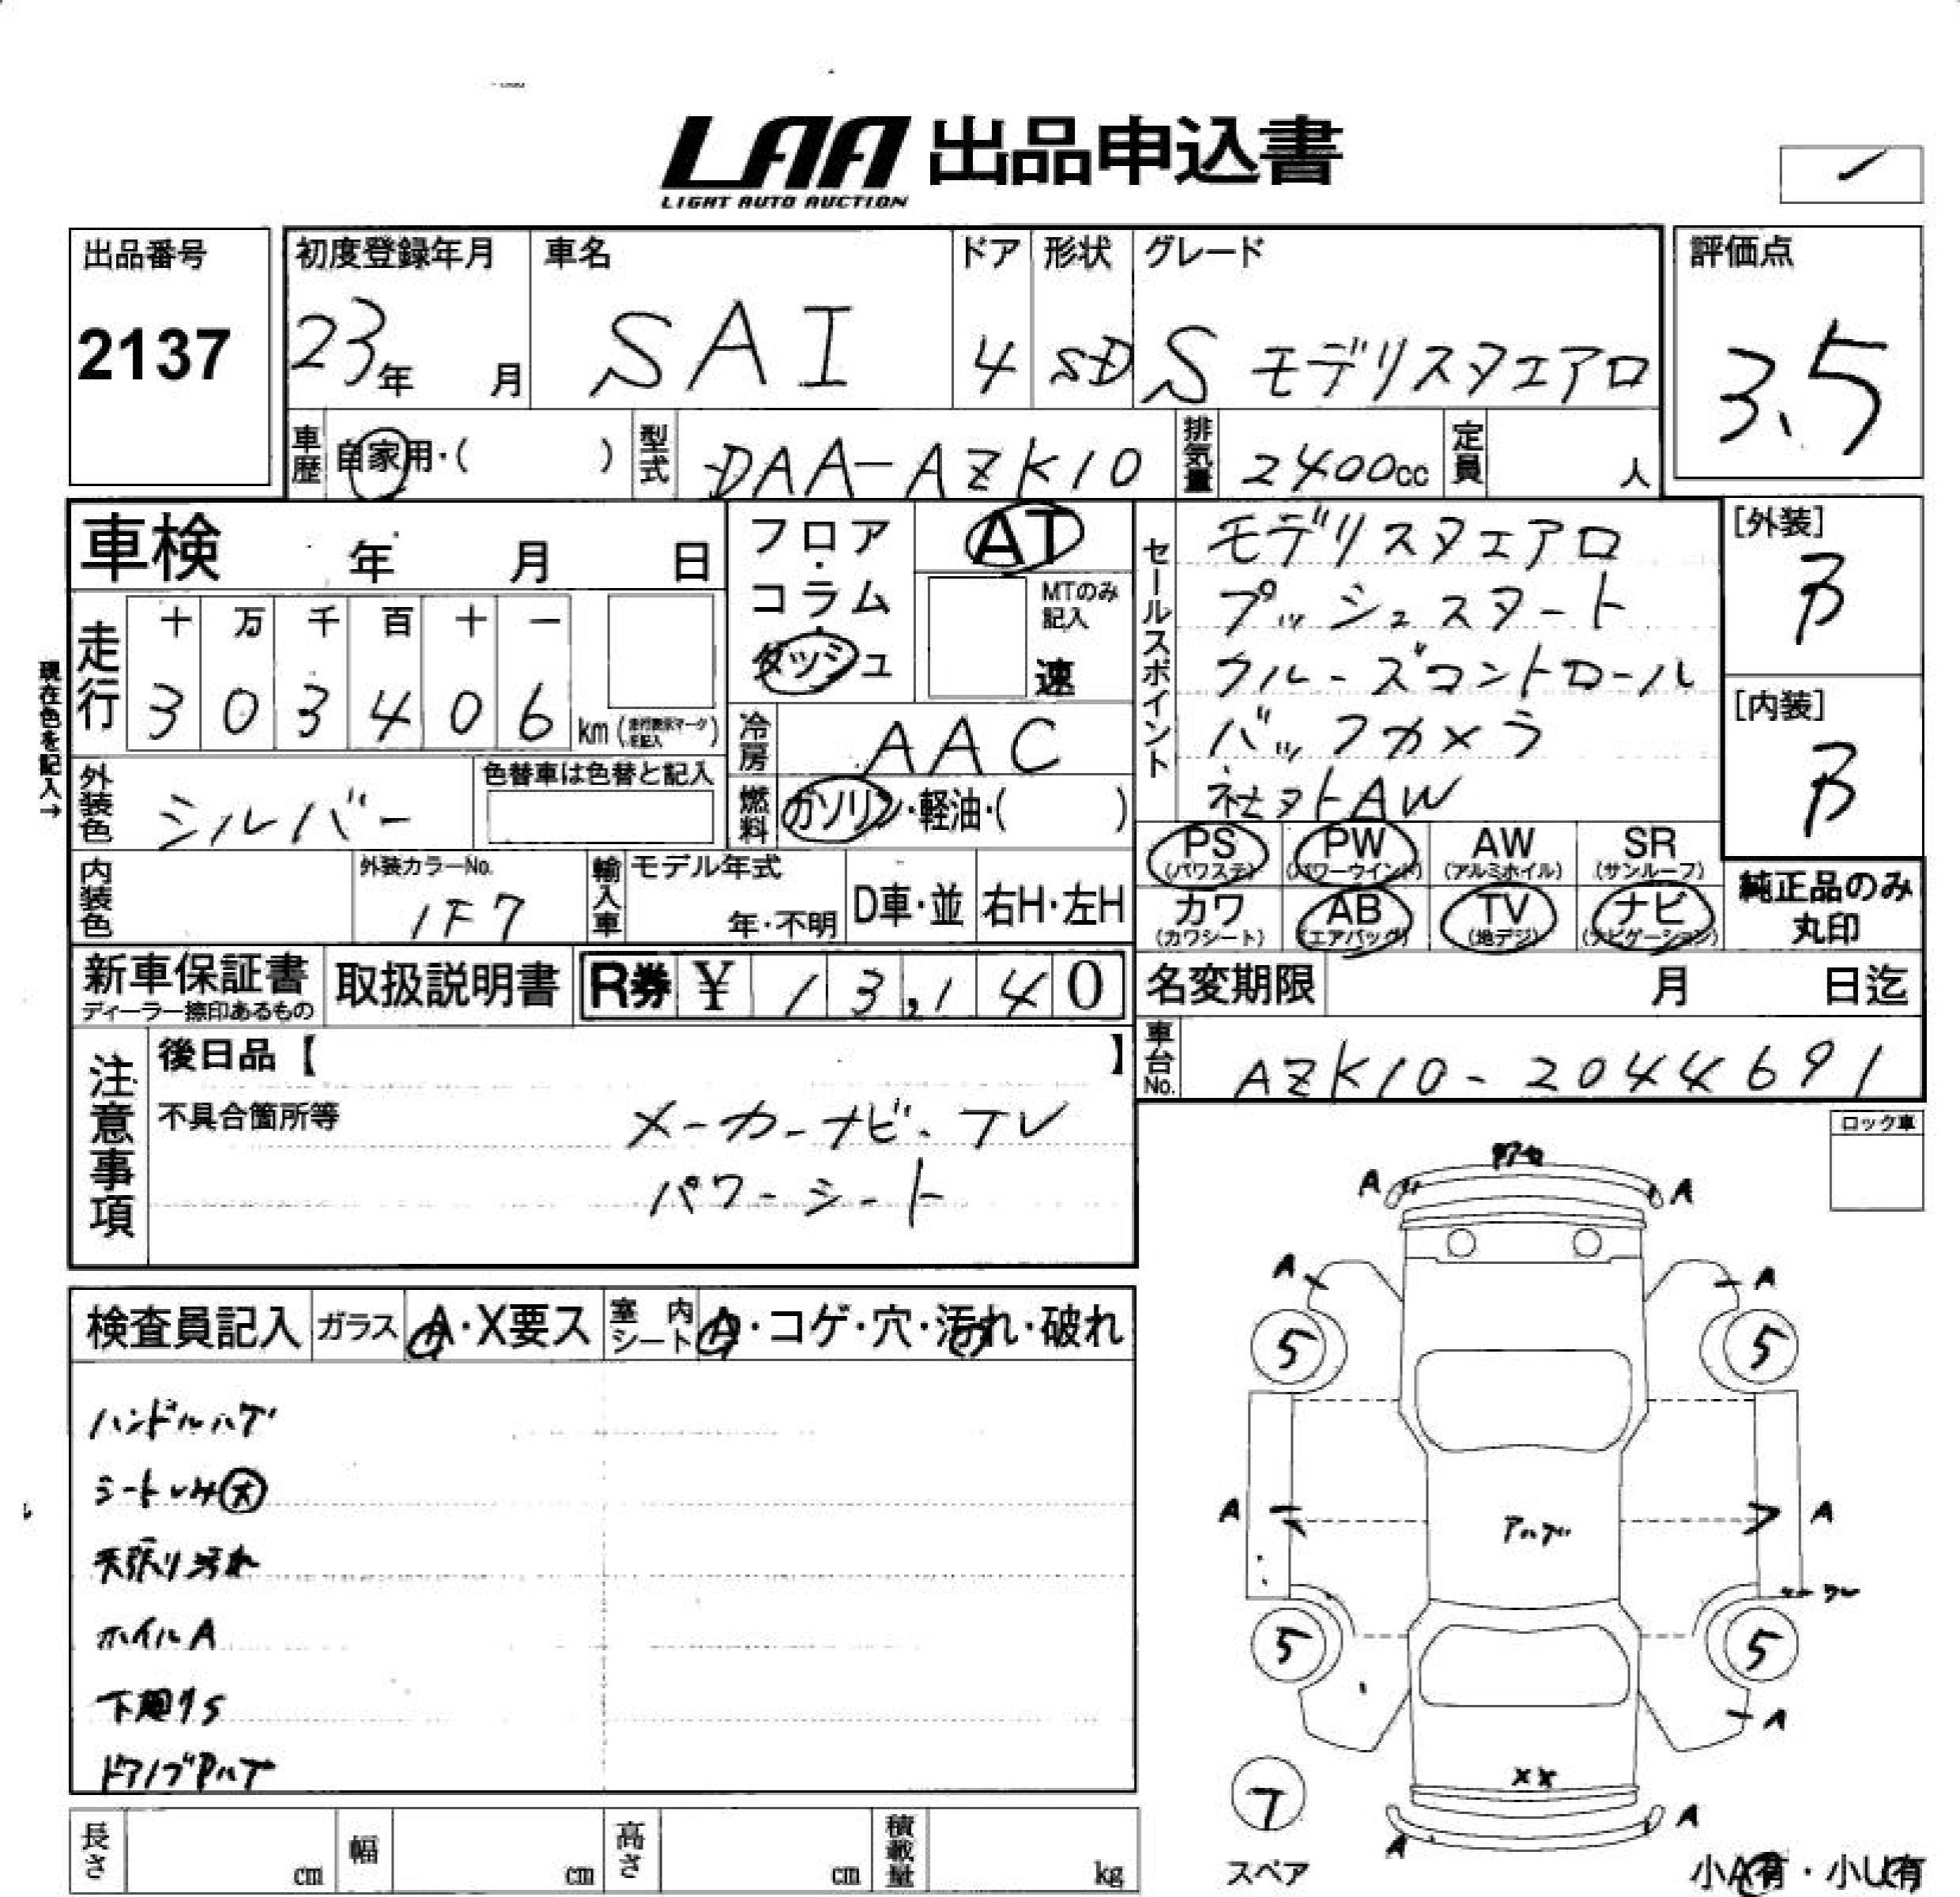 LAA 出品申込書
LIGHT AUTO AUCTION
出品番号
2137
初度登録年月
23年 月
車名
SAI
ドア
4
形状
SD
グレード
S モデリスタエアロ
評価点
3.5
車歴
自家用・( )
型式
DAA-AZK10
排気量
2400cc
定員
人
車検 年 月 日
フロア・コラム・ダッシュ
AT
MTのみ記入
速
セールスポイント
モデリスタエアロ
プッシュスタート
クルーズコントロール
バックカメラ
社外AW
[外装]
B
[内装]
B
現在色を記入→
走行
十 万 千 百 十 一
3 0 3 4 0 6 km
冷房
AAC
燃料
ガソリン・軽油・( )
外装色
シルバー
色替車は色替と記入
内装色
外装カラーNo.
1F7
輸入車
モデル年式
年・不明
D車・並
右H・左H
PS
(パワステ)
PW
(パワーウインド)
AW
(アルミホイル)
SR
(サンルーフ)
カワ
(カワシート)
AB
(エアバッグ)
TV
(地デジ)
ナビ
(ナビゲーション)
純正品のみ
丸印
新車保証書
ディーラー捺印あるもの
取扱説明書
R券 ¥ 13,140
名変期限 月 日迄
車台No.
AZK10-2044691
注意事項
後日品【 】
不具合箇所等
メーカーナビ・TV
パワーシート
ロック車
検査員記入
ガラス
A・X要ス
室内シート
A・コゲ・穴・汚れ・破れ
ハンドルハゲ
シートシミ大
天張り汚れ
ホイルA
下廻サS
ドアノブPハゲ
A
A
A
A
5
5
A
A
5
5
A
XX
A
A
7
スペア
小A有・小U有
長さ cm
幅 cm
高さ cm
積載量 kg